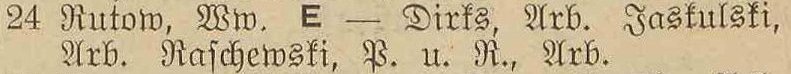 24 Rutow, Ww. E — Dirks, Arb. Jaskulski,
Arb. Raschewski, P. u. R., Arb.